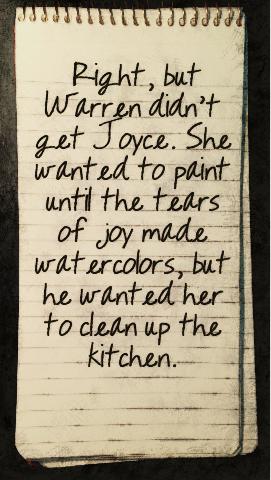 Right, but
Warren didn't
get Joyce. She
wanted to paint
until the tears
of joy made
watercolors, but
he wanted her
to clean up the
kitchen.